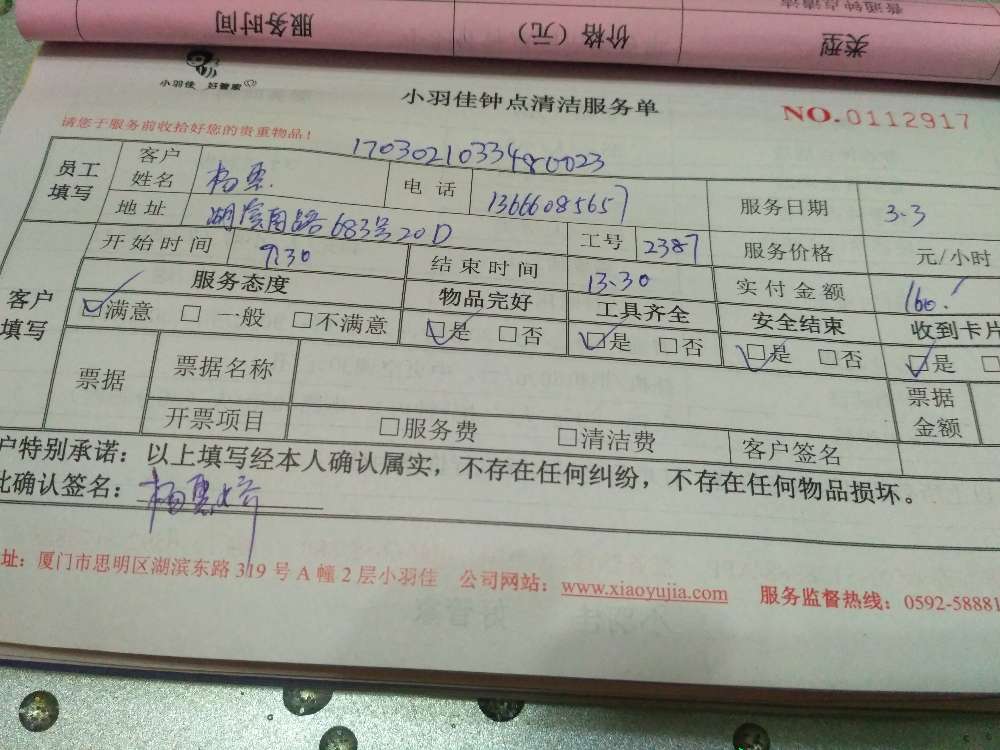 服务时间 价格（元） 类型
普通钟点清洁
小羽佳 好管家
小羽佳钟点清洁服务单
NO.0112917
请您于服务前收拾好您的贵重物品！
1703021033480023
员工填写 客户姓名 杨惠 电话 13666085657 服务日期 3.3
地址 湖滨南路683号20D 工号 2387 服务价格 元/小时
客户填写 开始时间 9:30 结束时间 13.30 实付金额 160.
服务态度 物品完好 工具齐全 安全结束 收到卡片
☑满意 □一般 □不满意 ☑是 □否 ☑是 □否 ☑是 □否 ☑是 □
票据 票据名称 票据金额
开票项目 □服务费 □清洁费 客户签名
户特别承诺：以上填写经本人确认属实，不存在任何纠纷，不存在任何物品损坏。
此确认签名：杨惠婷
址：厦门市思明区湖滨东路 319 号 A 幢 2 层小羽佳 公司网站：www.xiaoyujia.com 服务监督热线：0592-58881